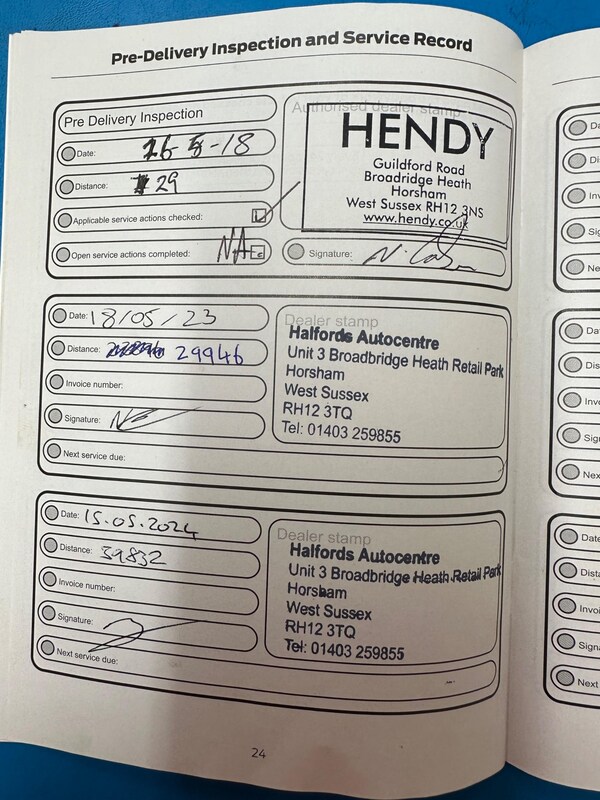 Pre-Delivery Inspection and Service Record
Pre Delivery Inspection
Date: 26-5-18
Distance: 29
Applicable service actions checked:
Open service actions completed: NA
Authorised dealer stamp
HENDY
Guildford Road
Broadridge Heath
Horsham
West Sussex RH12 3NS
www.hendy.co.uk
Signature:
Date: 18/05/23
Distance: 29946
Invoice number:
Signature:
Next service due:
Dealer stamp
Halfords Autocentre
Unit 3 Broadbridge Heath Retail Park
Horsham
West Sussex
RH12 3TQ
Tel: 01403 259855
Date: 15.05.2024
Distance: 39832
Invoice number:
Signature:
Next service due:
Dealer stamp
Halfords Autocentre
Unit 3 Broadbridge Heath Retail Park
Horsham
West Sussex
RH12 3TQ
Tel: 01403 259855
24
Da
Di
Inv
Sig
Ne
Da
Dis
Invo
Sig
Nex
Date
Dista
Invoi
Sign
Next